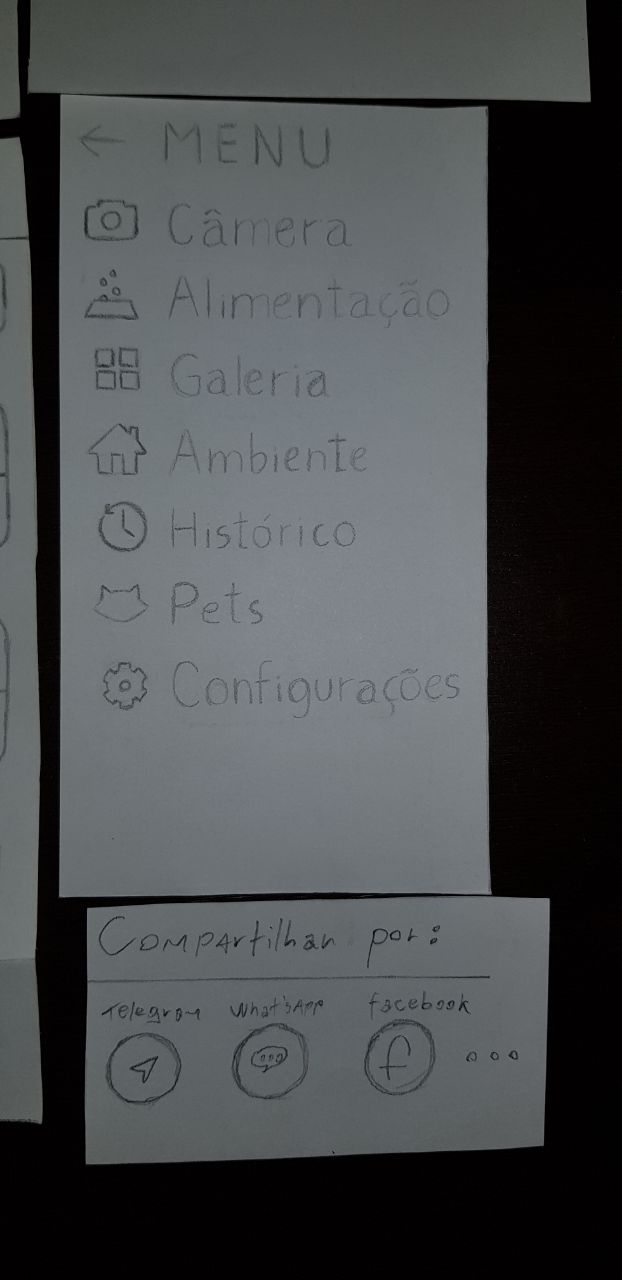 ← MENU
Câmera
Alimentação
Galeria
Ambiente
Histórico
Pets
Configurações
Compartilhar por:
Telegram What'sApp facebook
f